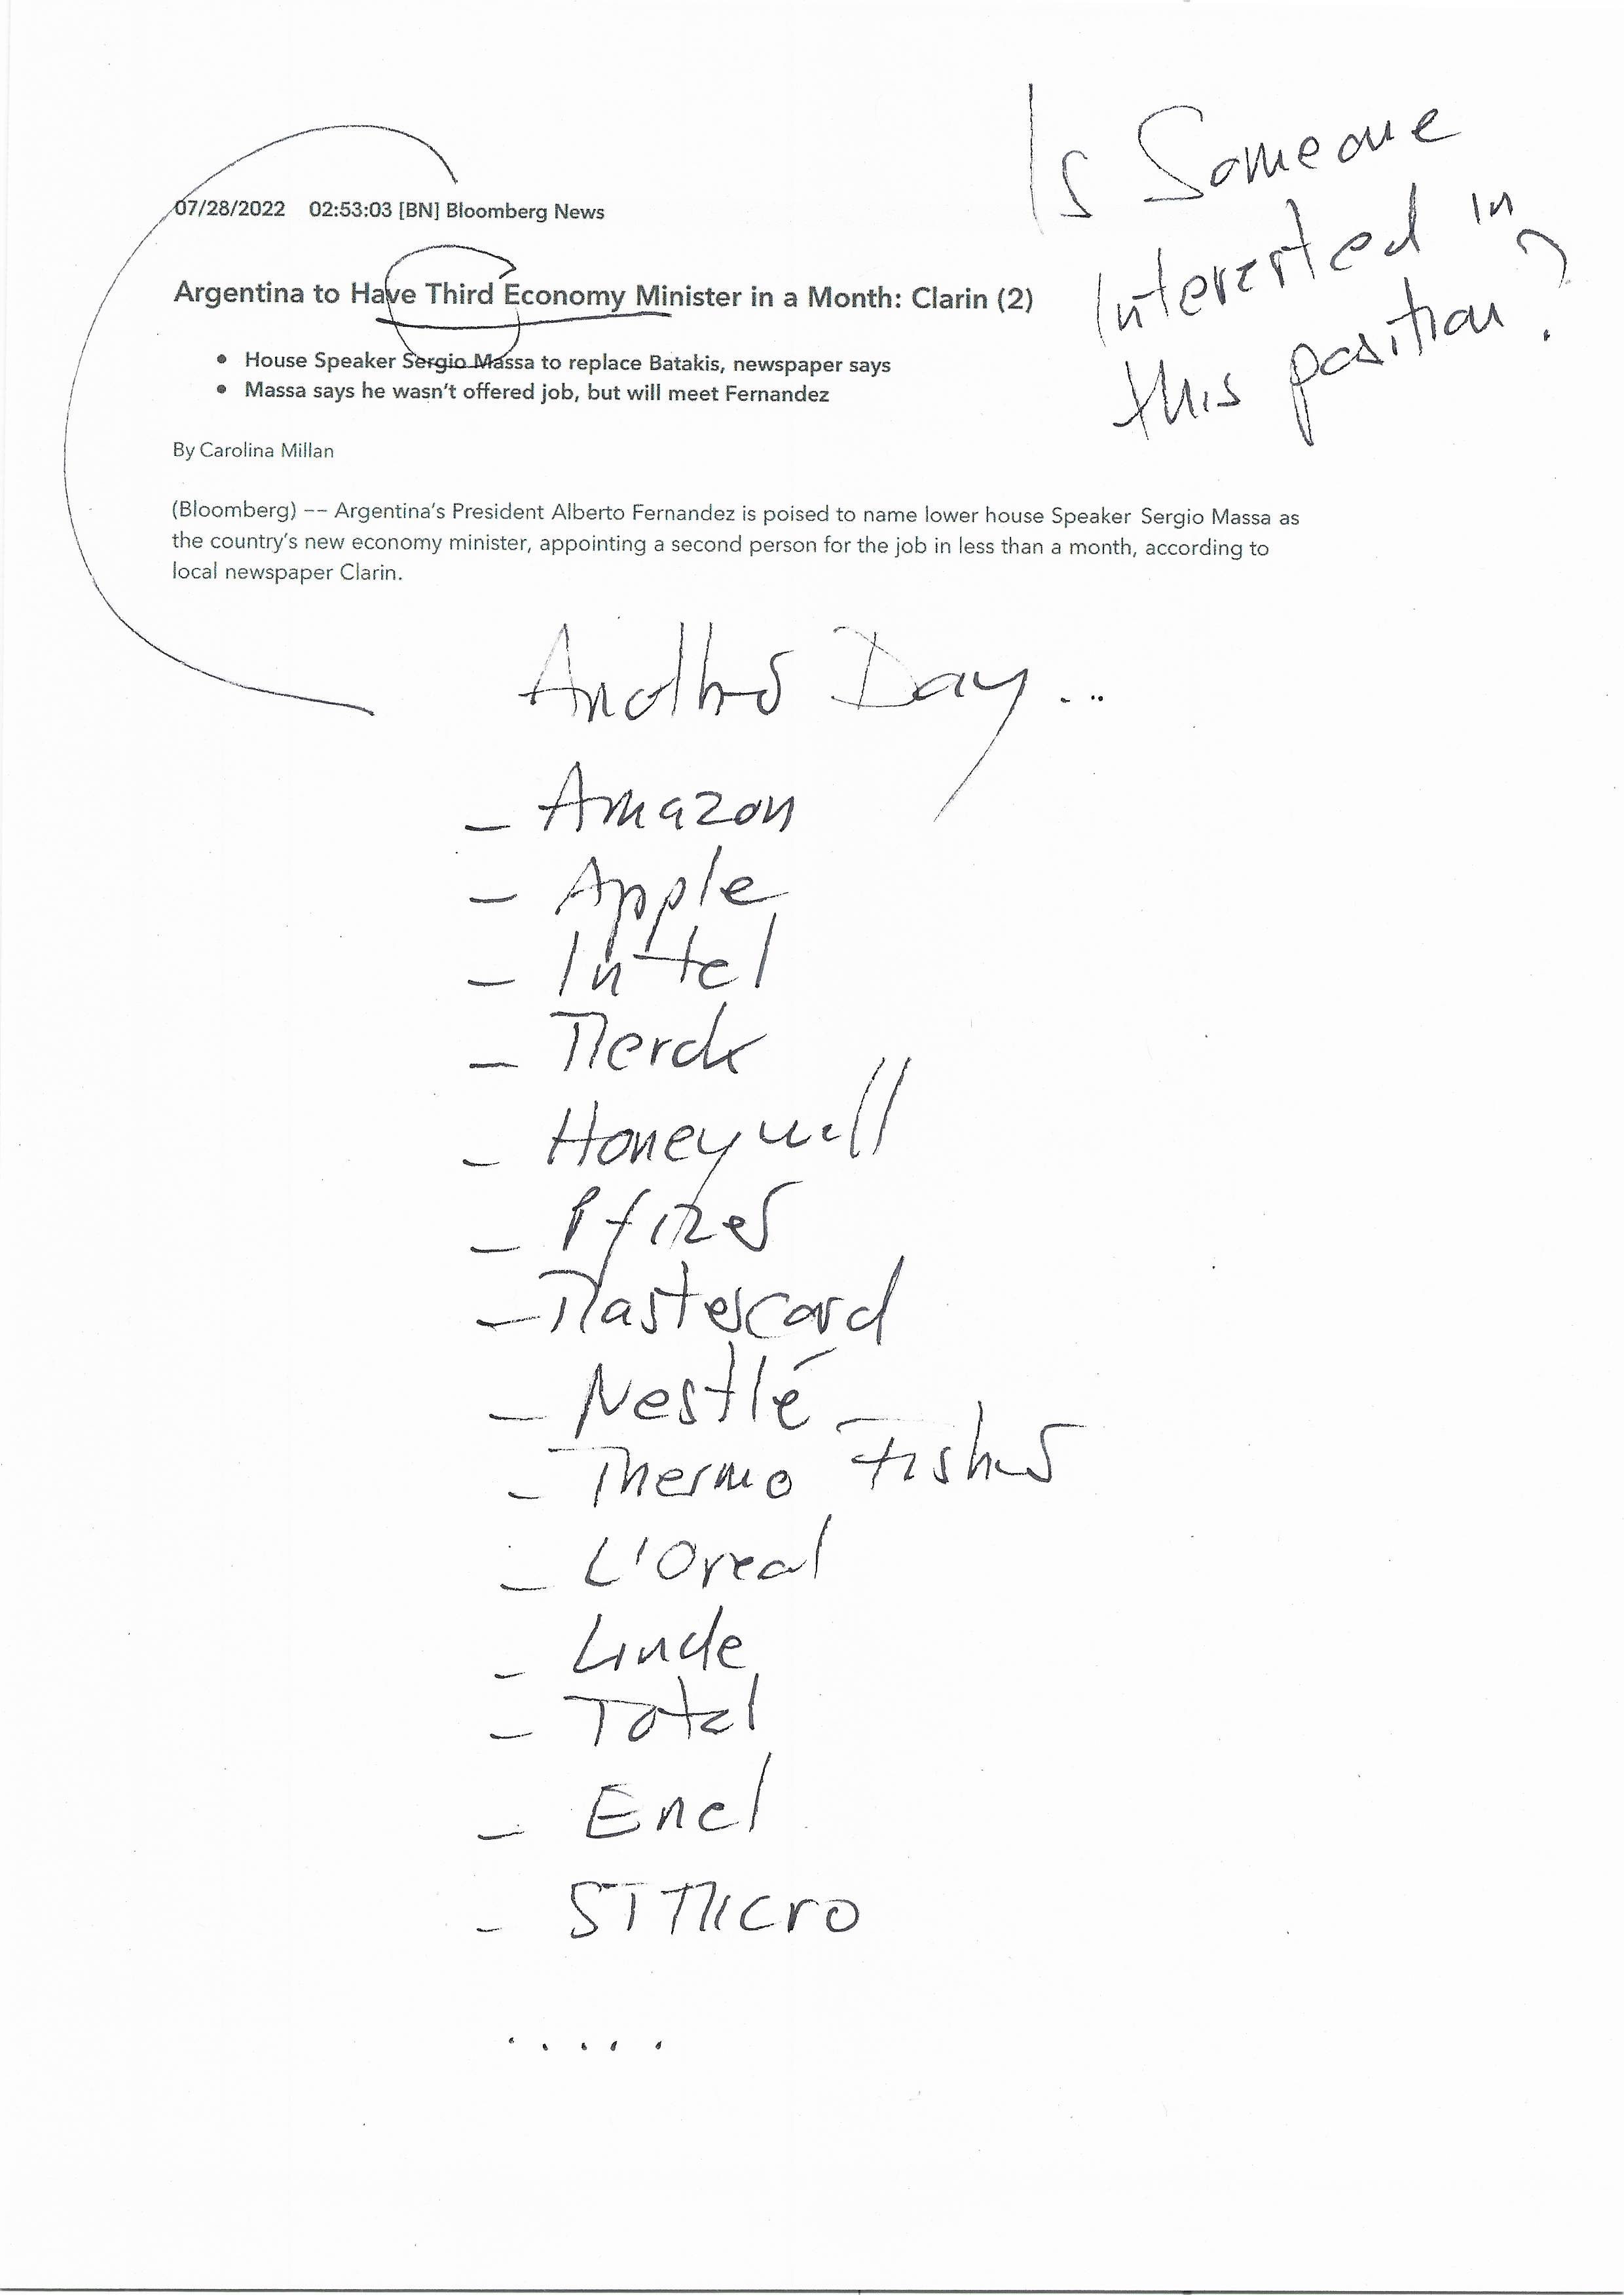 Is Someone
Interested in
this position?
07/28/2022 02:53:03 [BN] Bloomberg News
Argentina to Have Third Economy Minister in a Month: Clarin (2)
• House Speaker Sergio Massa to replace Batakis, newspaper says
• Massa says he wasn't offered job, but will meet Fernandez
By Carolina Millan
(Bloomberg) -- Argentina's President Alberto Fernandez is poised to name lower house Speaker Sergio Massa as
the country's new economy minister, appointing a second person for the job in less than a month, according to
local newspaper Clarin.
Another Day...
- Amazon
- Apple
- Intel
- Merck
- Honeywell
- Pfizer
- Mastercard
- Nestlé
- Thermo Fisher
- L'Oreal
- Linde
- Total
- Enel
- STMicro
.....